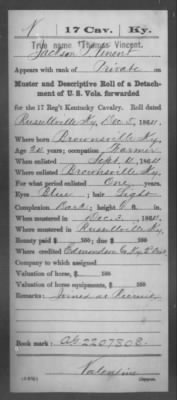 V | 17 Cav. | Ky.
True name Thomas Vincent.
Jackson Vincent
Appears with rank of Private on
Muster and Descriptive Roll of a Detach-
ment of U. S. Vols. forwarded
for the 17 Reg't Kentucky Cavalry. Roll dated
Russellville Ky, Dec. 5, 1864.
Where born Brownsville Ky.
Age 20 years; occupation Farmer
When enlisted Sept. 10, 1864.
Where enlisted Brownsville Ky.
For what period enlisted One years.
Eyes Blue; hair Light
Complexion Dark; height 6 ft. in.
When mustered in Dec. 3, 1864.
Where mustered in Russellville Ky.
Bounty paid $ 100; due $ 100
Where credited Edmondson Co Ky
Company to which assigned
Valuation of horse, $ 100
Valuation of horse equipments, $ 100
Remarks: Joined as Recruit
Book mark: 2207302
Valentine
Copyist.